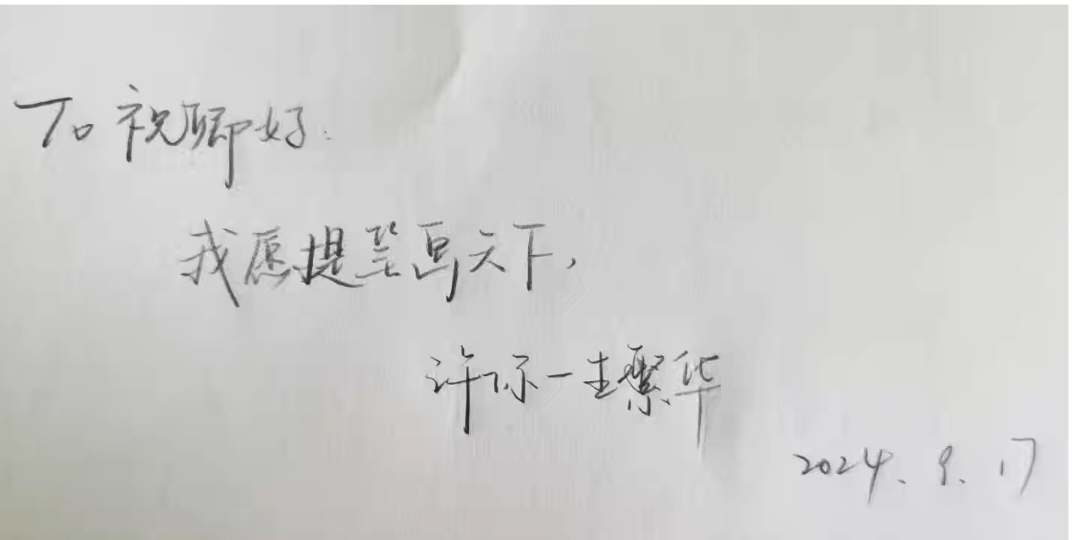 To 祝卿好:
我愿提笔画天下,
许你一生繁华
2024.9.17